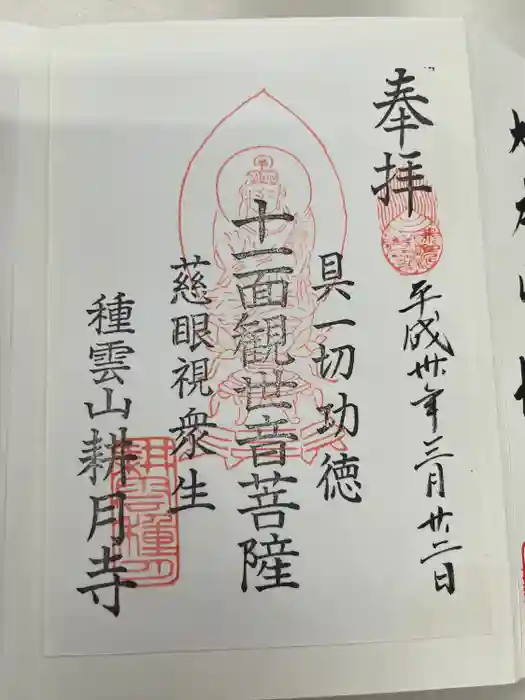 奉拝
平成卅年三月廿二日
具一切功徳
十一面観世音菩薩
慈眼視衆生
種雲山耕月寺